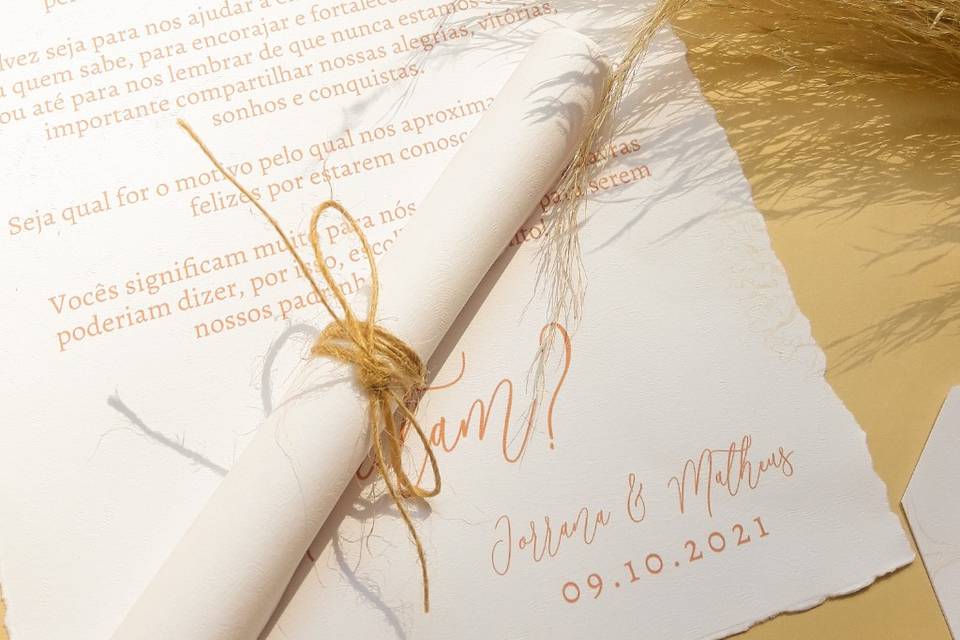 seja para nos ajudar a
quem sabe, para encorajar e
ou até para nos lembrar de que nunca estamos
importante compartilhar nossas alegrias, vitórias,
sonhos e conquistas.
Seja qual for o motivo pelo qual nos
felizes por estarem
Vocês significam para nós
serem
poderiam dizer, por isso,
nossos
Jorrana & Matheus
09.10.2021